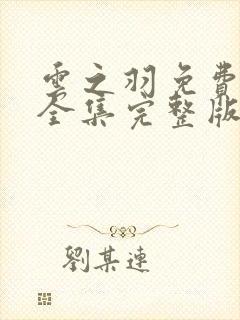 雲之羽免費
全集完整版
劉某連